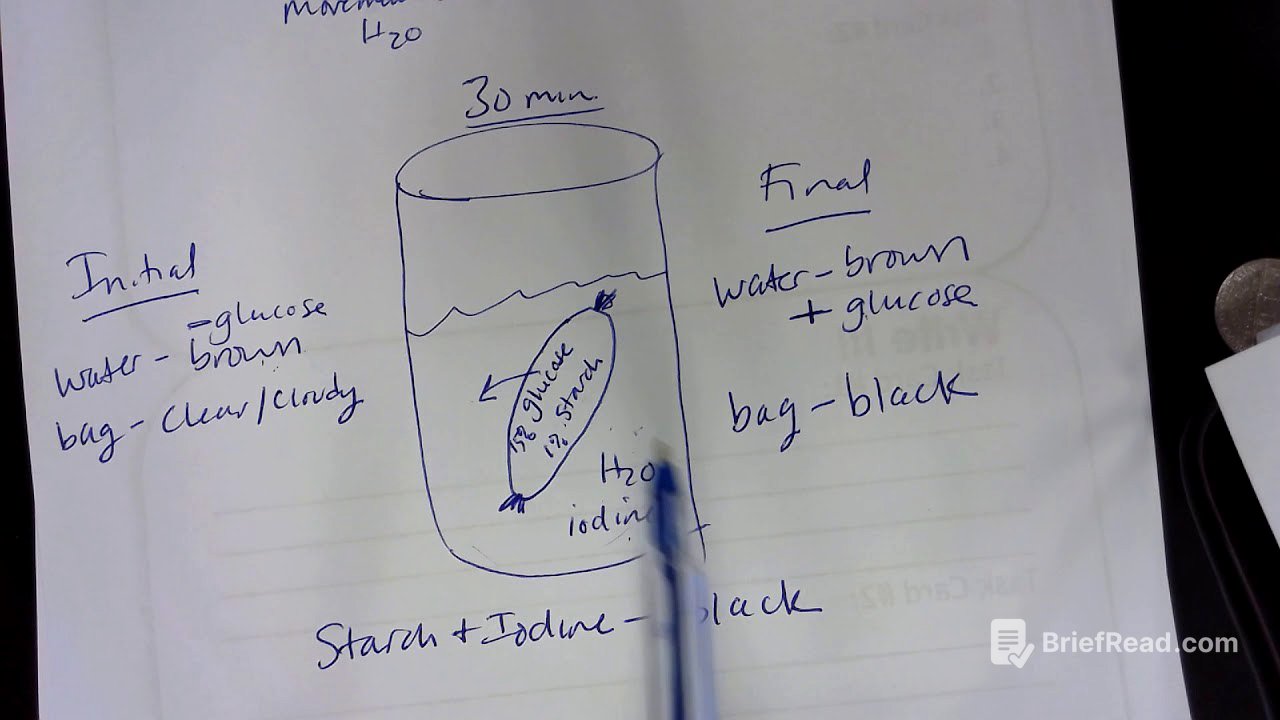 H2O
30 min.
Initial
- glucose
water - brown
bag - Clear/Cloudy
15% glucose
1% Starch
H2O
iodine
Final
water - brown
+ glucose
bag - black
Starch + Iodine - black
BriefRead.com